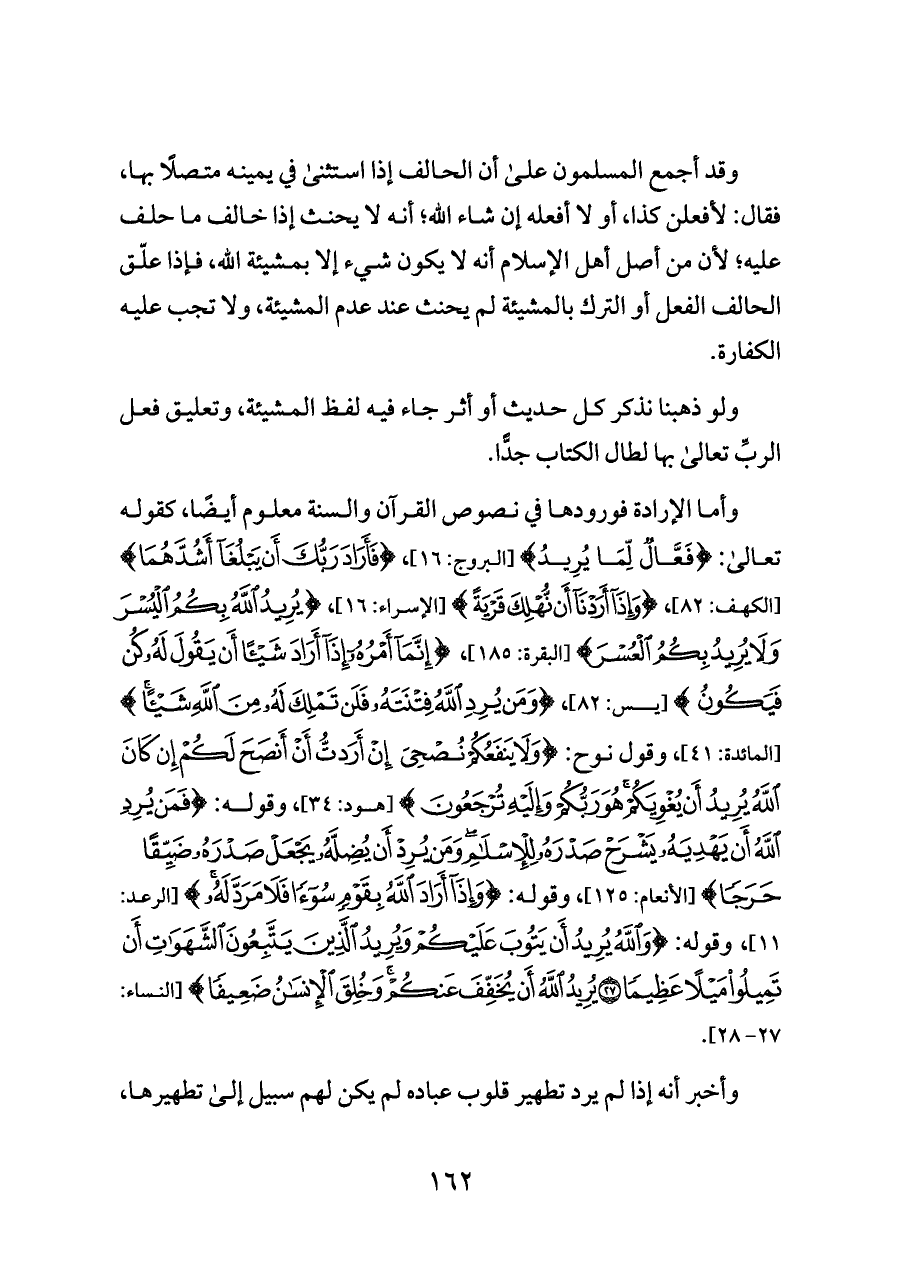 وقد أجمع المسلمون علىٰ أن الحالف إذا استثنىٰ في يمينه متصلًا بها،
فقال: لأفعلن كذا، أو لا أفعله إن شاء الله؛ أنه لا يحنث إذا خالف ما حلف
عليه؛ لأن من أصل أهل الإسلام أنه لا يكون شيء إلا بمشيئة الله، فإذا علّق
الحالف الفعل أو الترك بالمشيئة لم يحنث عند عدم المشيئة، ولا تجب عليه
الكفارة.
ولو ذهبنا نذكر كل حديث أو أثر جاء فيه لفظ المشيئة، وتعليق فعل
الربِّ تعالىٰ بها لطال الكتاب جدًّا.
وأما الإرادة فورودها في نصوص القرآن والسنة معلوم أيضًا، كقوله
تعالىٰ: ﴿فَعَّالٌ لِّمَا يُرِيدُ﴾ [البروج: ١٦]، ﴿فَأَرَادَ رَبُّكَ أَن يَبْلُغَآ أَشُدَّهُمَا﴾
[الكهف: ٨٢]، ﴿وَإِذَآ أَرَدْنَآ أَن نُّهْلِكَ قَرْيَةً﴾ [الإسراء: ١٦]، ﴿يُرِيدُ ٱللَّهُ بِكُمُ ٱلْيُسْرَ
وَلَا يُرِيدُ بِكُمُ ٱلْعُسْرَ﴾ [البقرة: ١٨٥]، ﴿إِنَّمَآ أَمْرُهُۥٓ إِذَآ أَرَادَ شَيْـًٔا أَن يَقُولَ لَهُۥ كُن
فَيَكُونُ﴾ [يس: ٨٢]، ﴿وَمَن يُرِدِ ٱللَّهُ فِتْنَتَهُۥ فَلَن تَمْلِكَ لَهُۥ مِنَ ٱللَّهِ شَيْـًٔا ۚ﴾
[المائدة: ٤١]، وقول نوح: ﴿وَلَا يَنفَعُكُمْ نُصْحِىٓ إِنْ أَرَدتُّ أَنْ أَنصَحَ لَكُمْ إِن كَانَ
ٱللَّهُ يُرِيدُ أَن يُغْوِيَكُمْ ۚ هُوَ رَبُّكُمْ وَإِلَيْهِ تُرْجَعُونَ﴾ [هود: ٣٤]، وقوله: ﴿فَمَن يُرِدِ
ٱللَّهُ أَن يَهْدِيَهُۥ يَشْرَحْ صَدْرَهُۥ لِلْإِسْلَٰمِ ۖ وَمَن يُرِدْ أَن يُضِلَّهُۥ يَجْعَلْ صَدْرَهُۥ ضَيِّقًا
حَرَجًا﴾ [الأنعام: ١٢٥]، وقوله: ﴿وَإِذَآ أَرَادَ ٱللَّهُ بِقَوْمٍ سُوٓءًا فَلَا مَرَدَّ لَهُۥ ۚ﴾ [الرعد:
١١]، وقوله: ﴿وَٱللَّهُ يُرِيدُ أَن يَتُوبَ عَلَيْكُمْ وَيُرِيدُ ٱلَّذِينَ يَتَّبِعُونَ ٱلشَّهَوَٰتِ أَن
تَمِيلُوا۟ مَيْلًا عَظِيمًا ۝٢٧ يُرِيدُ ٱللَّهُ أَن يُخَفِّفَ عَنكُمْ ۚ وَخُلِقَ ٱلْإِنسَٰنُ ضَعِيفًا﴾ [النساء:
٢٧-٢٨].
وأخبر أنه إذا لم يرد تطهير قلوب عباده لم يكن لهم سبيل إلىٰ تطهيرها،
١٦٢